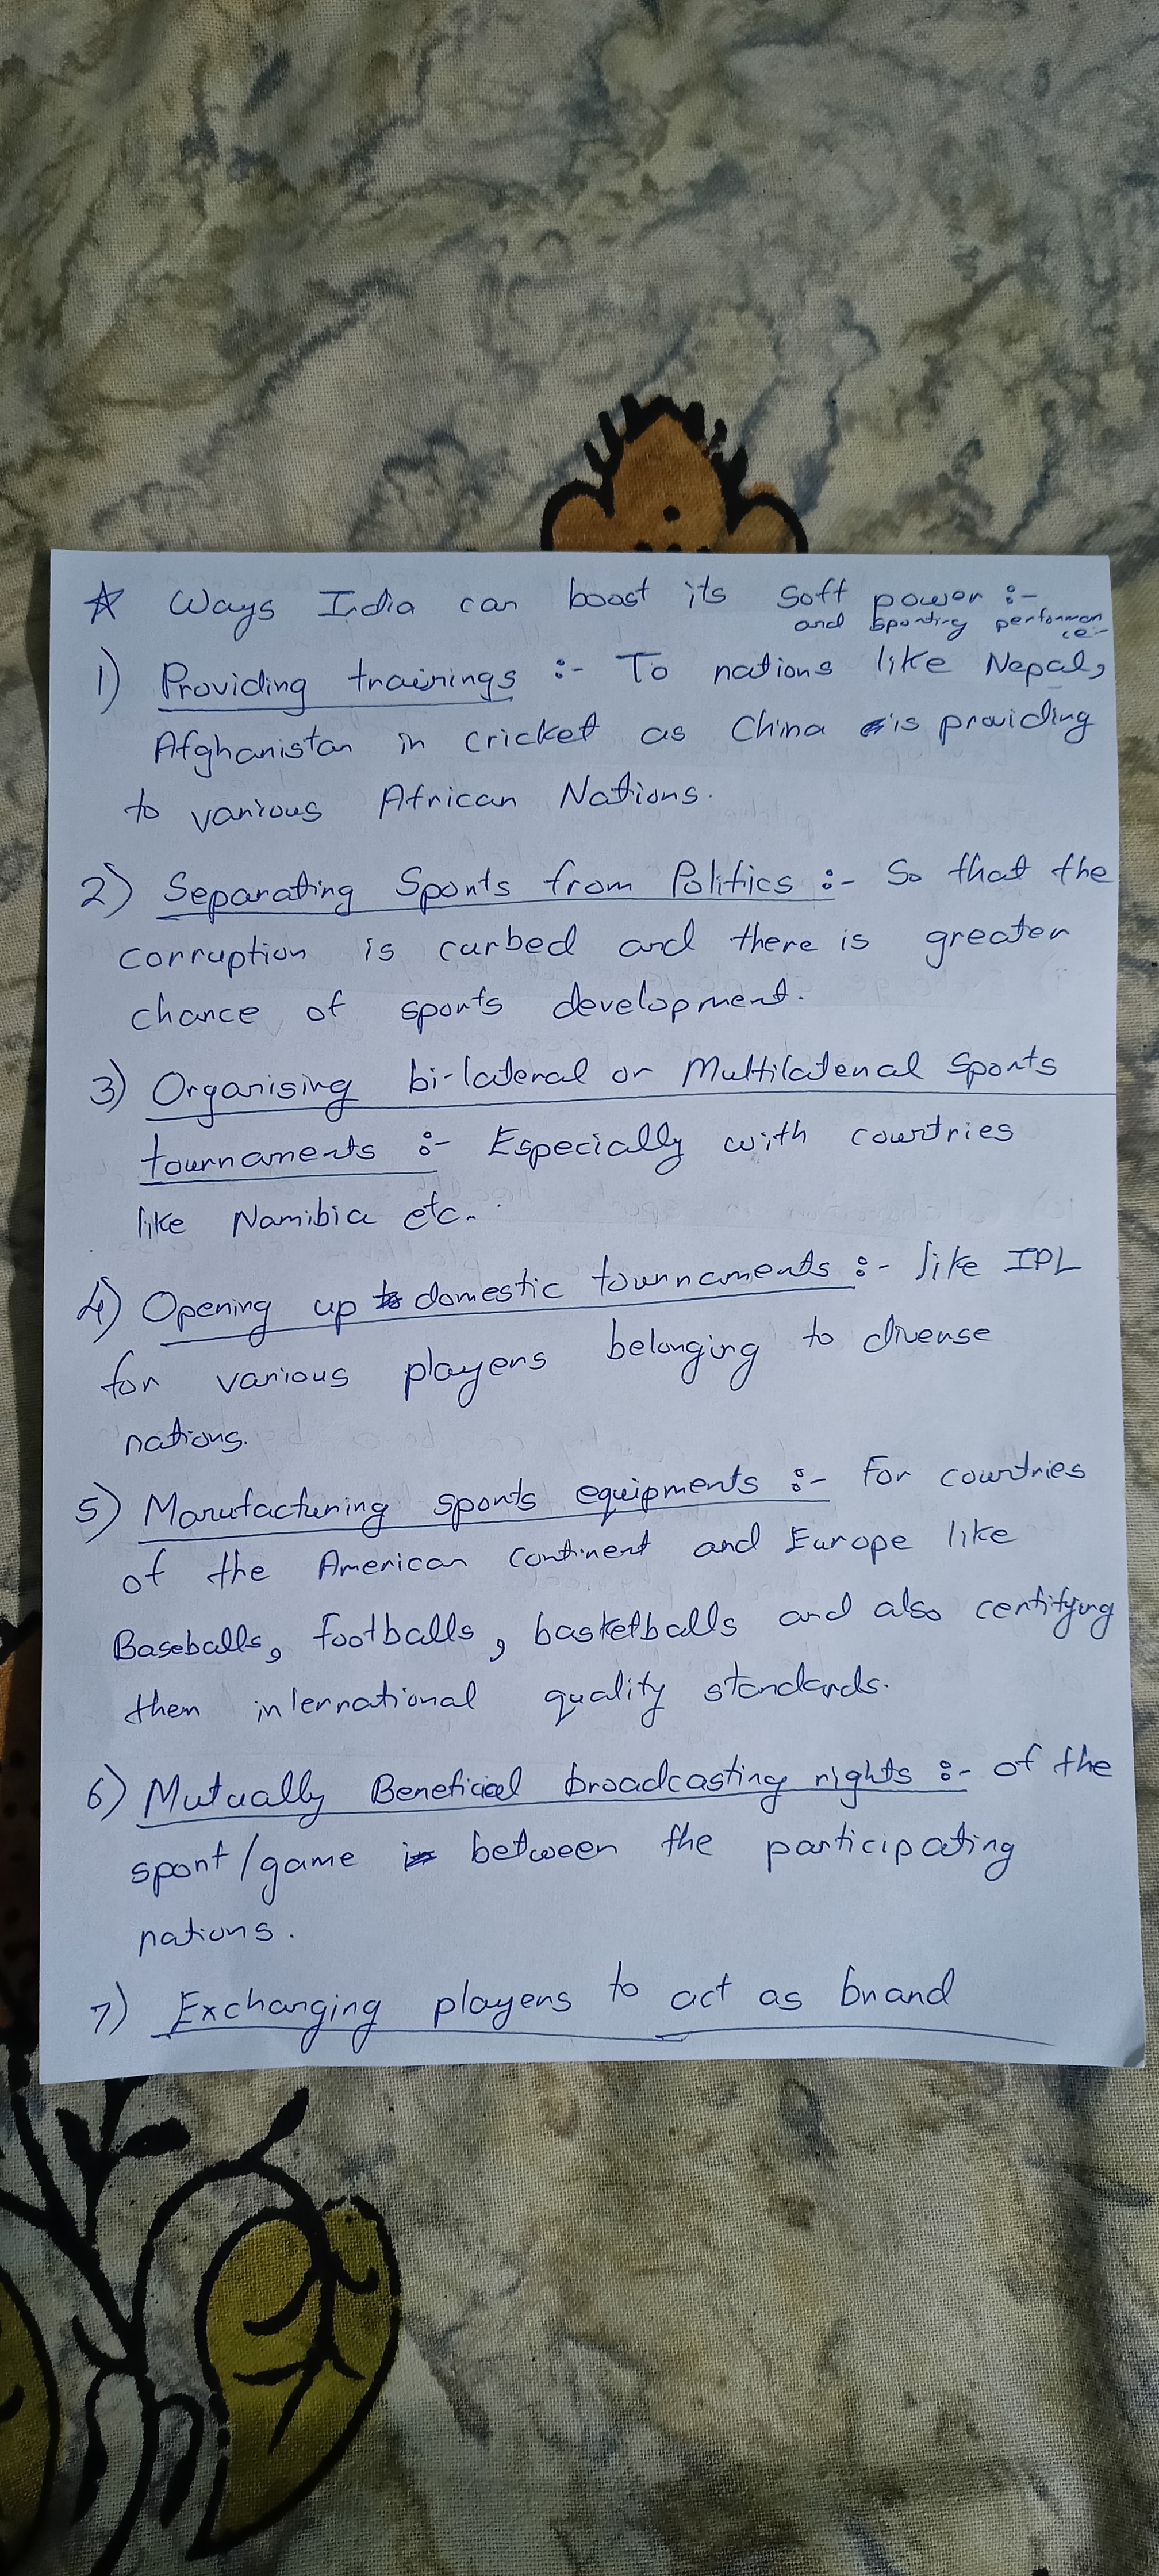 ☆ Ways India can boost its soft power :-
and sporting performance:-
1) Providing trainings :- To nations like Nepal,
Afghanistan in cricket as China is providing
to various African Nations.
2) Separating Sports from Politics :- So that the
corruption is curbed and there is greater
chance of sports development.
3) Organising bi-lateral or Multilateral Sports
tournaments :- Especially with countries
like Namibia etc.
4) Opening up domestic tournaments :- like IPL
for various players belonging to diverse
nations.
5) Manufacturing sports equipments :- For countries
of the American continent and Europe like
Baseballs, footballs, basketballs and also certifying
them international quality standards.
6) Mutually Beneficial broadcasting rights :- of the
sport/game between the participating
nations.
7) Exchanging players to act as brand